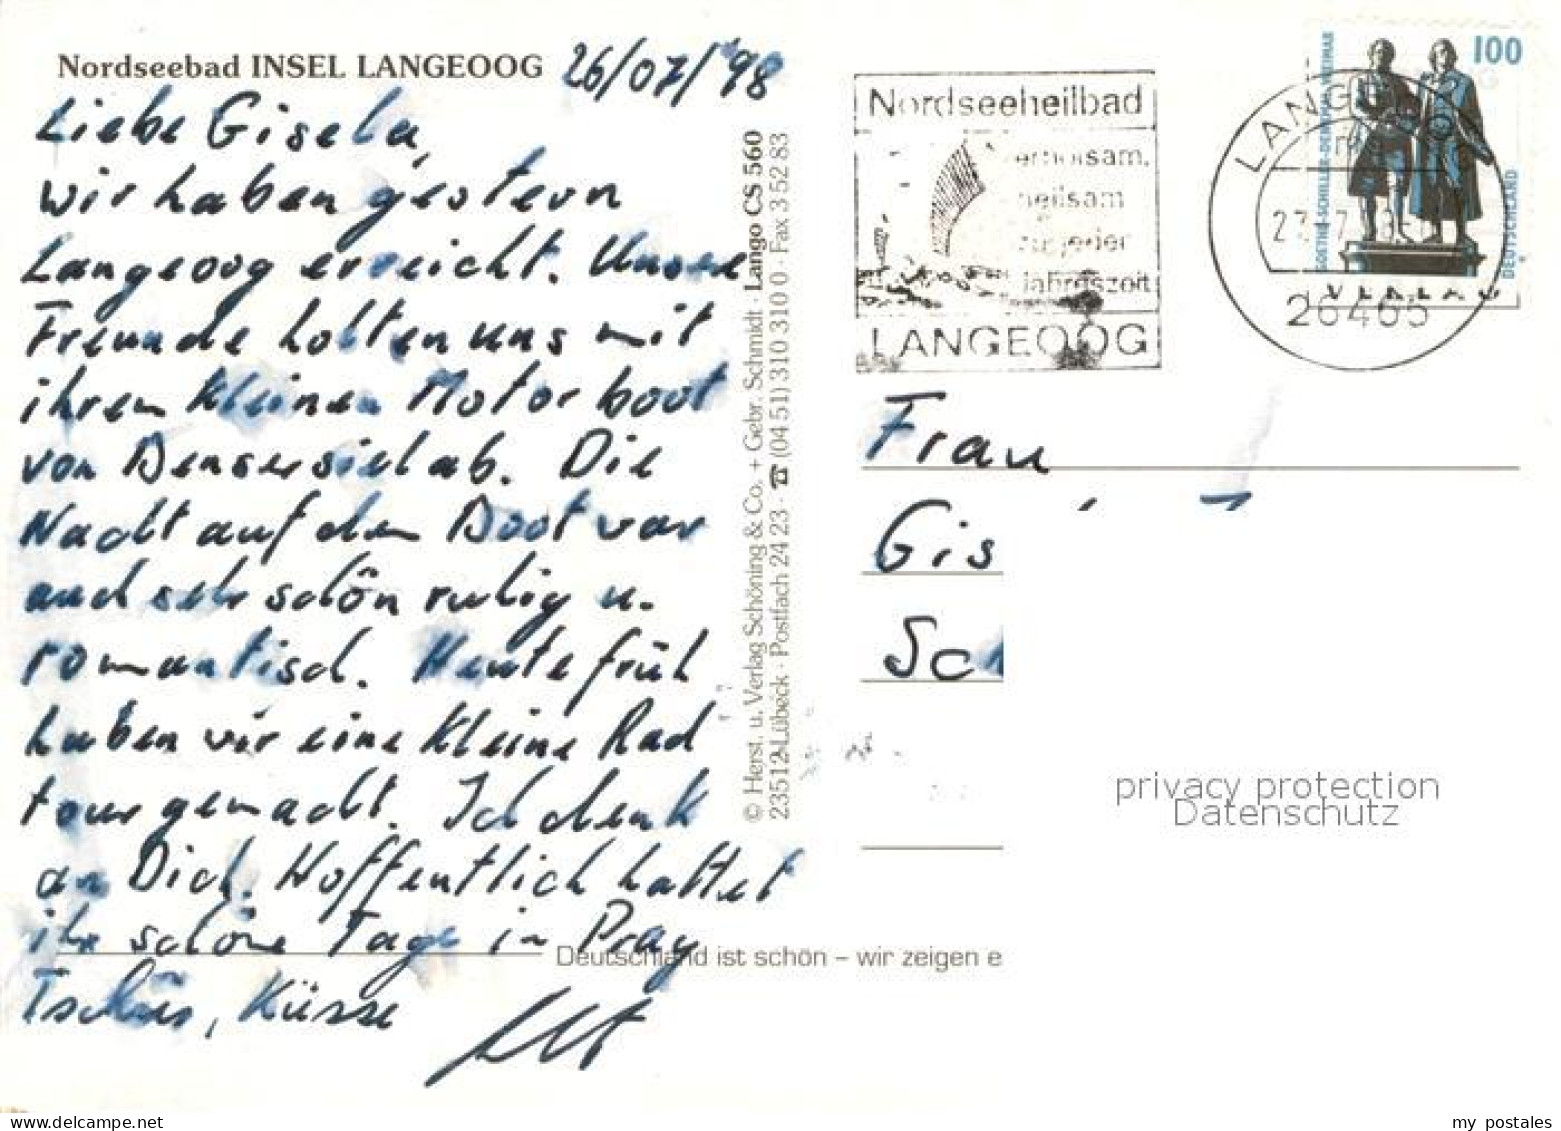 Nordseebad INSEL LANGEOOG
26/07/98
Liebe Gisela,
wir haben gestern
Langeoog erreicht. Unsere
Freunde holten uns mit
ihrem kleinen Motorboot
von Bensersiel ab. Die
Nacht auf dem Boot war
auch sehr schön ruhig u.
romantisch. Heute früh
haben wir eine kleine Rad
tour gemacht. Ich denk
an Dich. Hoffentlich hattet
ihr schöne Tage in Prag
Tschüs, Küsse
© Herst. u. Verlag Schöning & Co. + Gebr. Schmidt · Lango CS 560
23512 Lübeck · Postfach 24 23 · ☎ (04 51) 310 310 0 · Fax 3 52 83
Nordseeheilbad
erholsam,
heilsam
zu jeder
Jahreszeit
LANGEOOG
LANGEOOG
26465
100
GOETHE-SCHILLER-DENKMAL WEIMAR
DEUTSCHLAND
Frau
Gis
Sch
privacy protection
Datenschutz
Deutschland ist schön – wir zeigen e
my postales